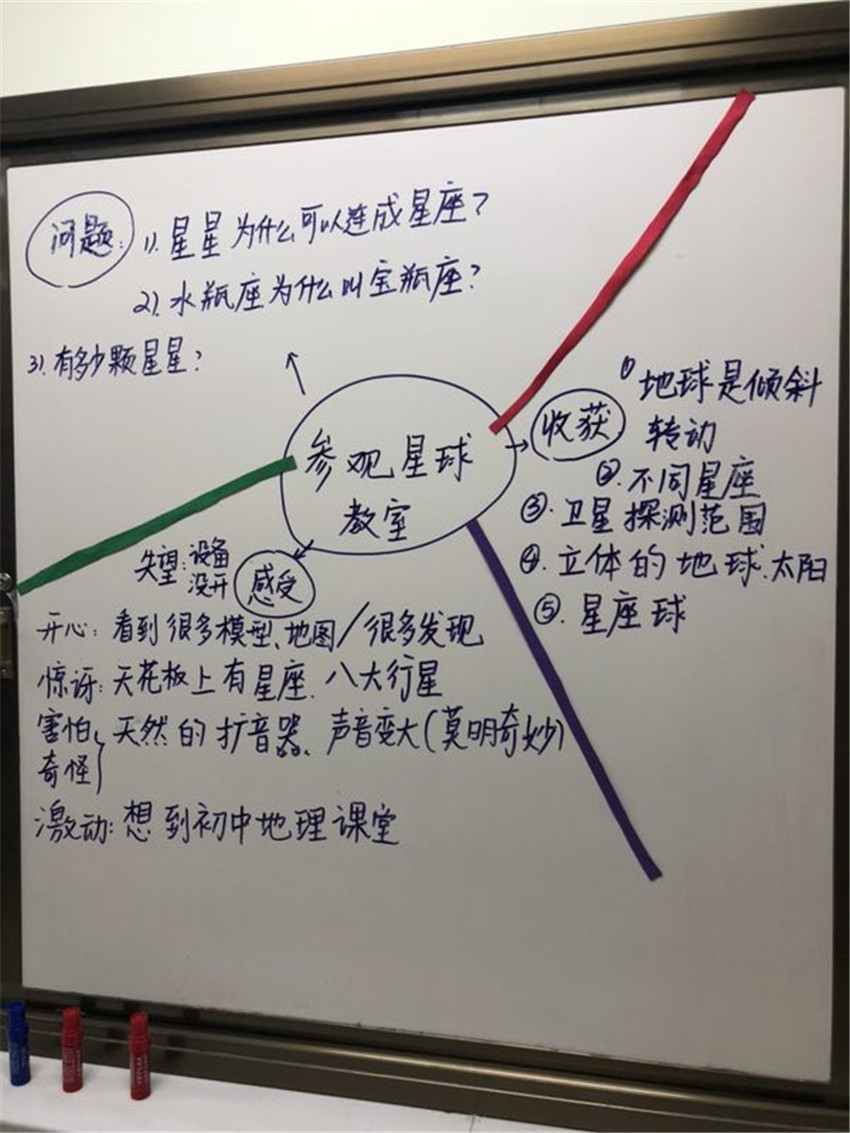 问题: 1). 星星为什么可以连成星座?
2). 水瓶座为什么叫宝瓶座?
3). 有多少颗星星?
参观星球
教室
收获
① 地球是倾斜
转动
② 不同星座
③. 卫星探测范围
④. 立体的地球、太阳
⑤. 星座球
感受
失望: 设备
没开
开心: 看到很多模型、地图/很多发现
惊讶: 天花板上有星座、八大行星
害怕
奇怪} 天然的扩音器、声音变大(莫明奇妙)
激动: 想到初中地理课堂